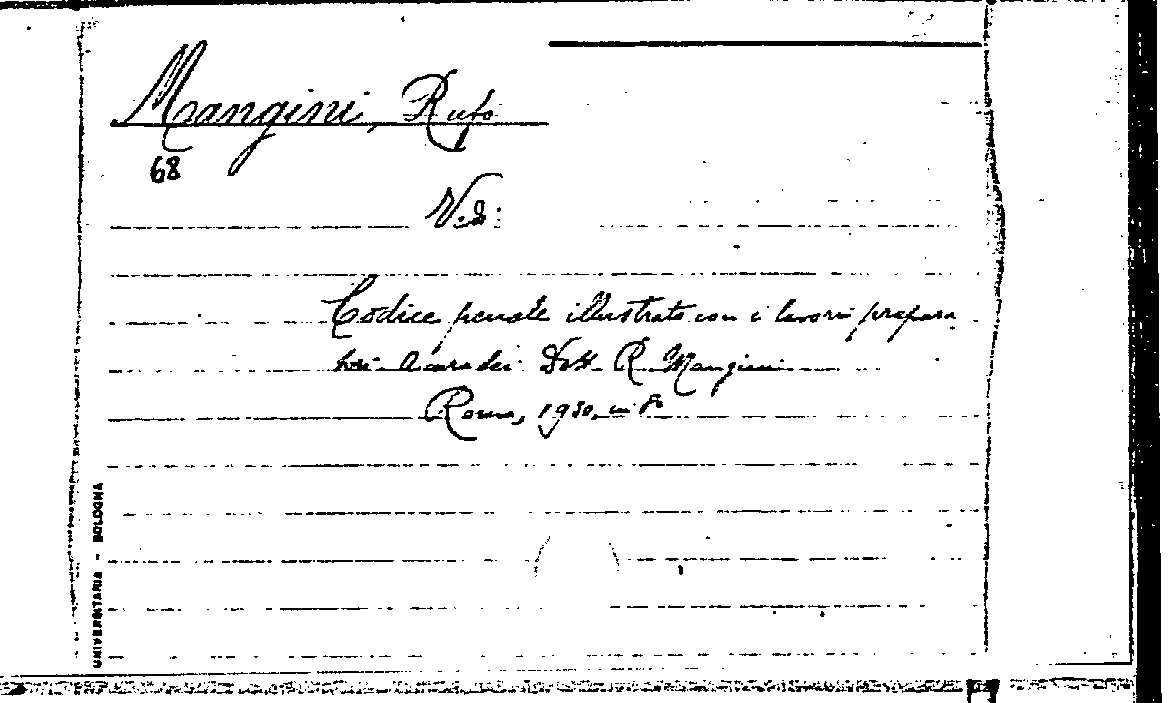 Mangini, Rufo
68
V.d:
Codice penale illustrato con i lavori prepara
tori. A cura dei Dott. R. Mangini
Roma, 1930, in 8º
UNIVERSITARIA - BOLOGNA